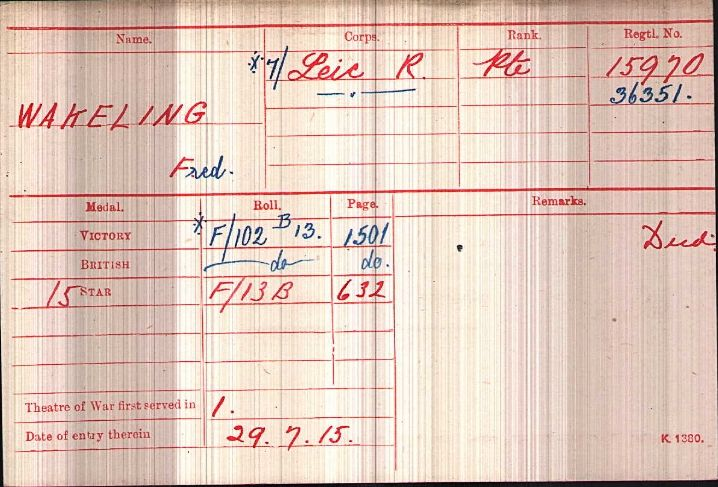 Name. Corps. Rank. Regtl. No.
* 7/ Leic R. Pte 15970
36351.
WAKELING
Fred.
Medal. Roll. Page. Remarks.
VICTORY * F/102 B 13. 1501 Died
BRITISH do do.
15 STAR F/13 B 632
Theatre of War first served in 1.
Date of entry therein 29.7.15.
K. 1380.